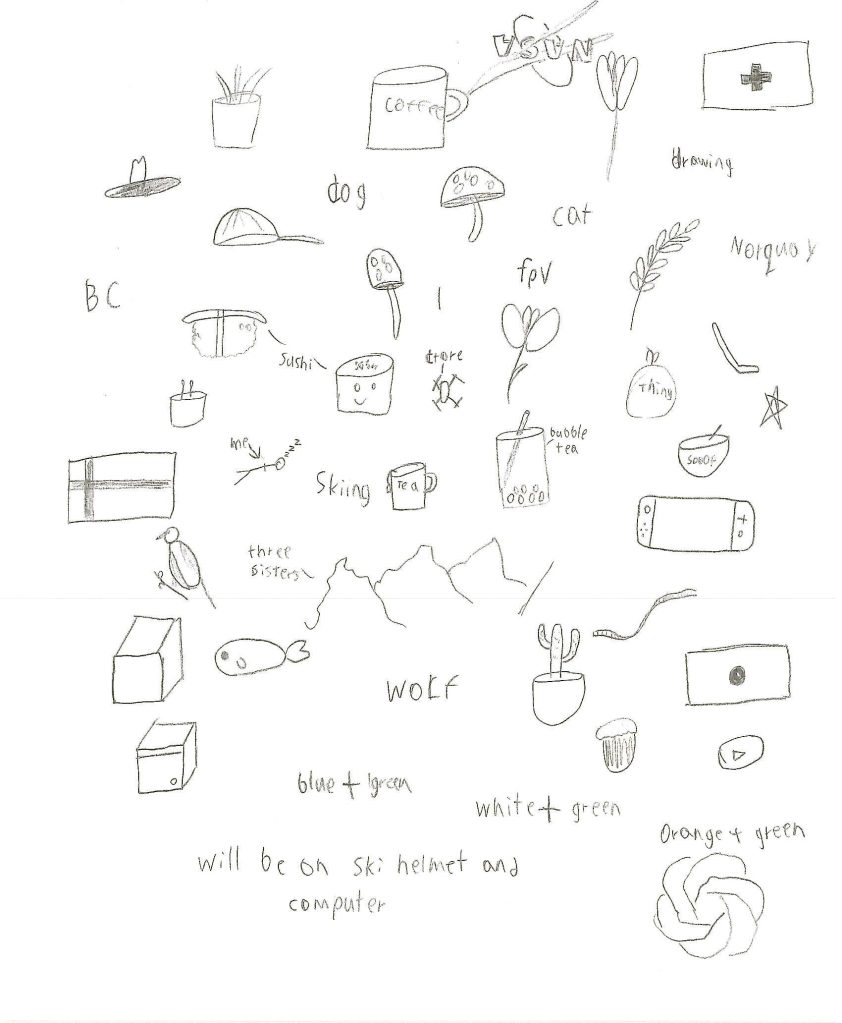 coffee
drawing
dog
cat
Norquay
fpV
BC
Sushi
Thing
me
zzz
bubble
tea
Skiing
Tea
three
sisters
WOLF
blue + green
white + green
Orange + green
will be on ski helmet and
computer